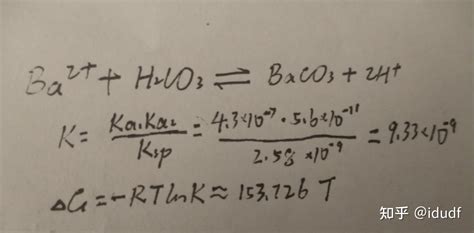 Ba²⁺ + H₂CO₃ ⇌ BaCO₃ + 2H⁺
K = Ka₁·Ka₂/Ksp = 4.3×10⁻⁷ · 5.6×10⁻¹¹/2.58×10⁻⁹ = 9.33×10⁻⁹
ΔG = -RTlnK ≈ 153.726 T
知乎 @idudf